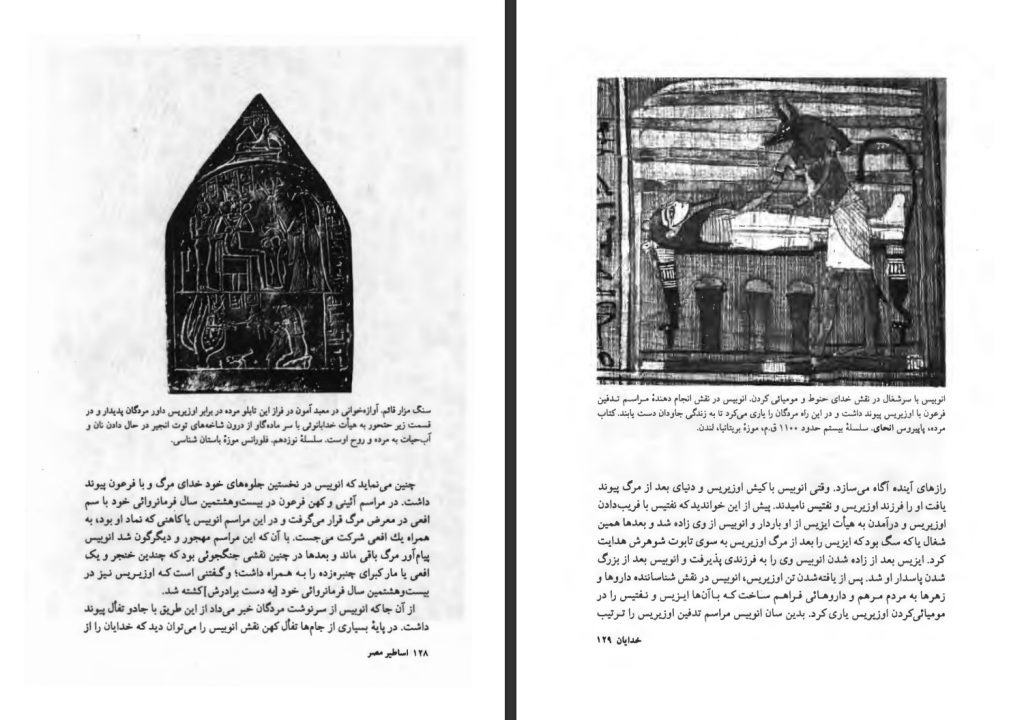 سنگ مزار قائم. آوازه‌خوانی در معبد آمون در فراز این تابلو مرده در برابر اوزیریس داور مردگان پدیدار و در
قسمت زیر حتحور به هیأت خدابانوئی با سر ماده‌گاو از درون شاخه‌های توت انجیر در حال دادن نان و
آب‌حیات به مرده و روح اوست. سلسلهٔ نوزدهم. فلورانس موزهٔ باستان شناسی.
چنین می‌نماید که انوبیس در نخستین جلوه‌های خود خدای مرگ و با فرعون پیوند
داشت. در مراسم آئینی و کهن فرعون در بیست‌وهشتمین سال فرمانروائی خود با سم
افعی در معرض مرگ قرار می‌گرفت و در این مراسم انوبیس یا کاهنی که نماد او بود، به
همراه یك افعی شرکت می‌جست. با آن که این مراسم مهجور و دیگرگون شد انوبیس
پیام‌آور مرگ باقی ماند و بعدها در چنین نقشی جنگجوئی بود که چندین خنجر و یک
افعی یا مار کبرای چنبره‌زده را به همراه داشت؛ و گفتنی است که اوزیریس نیز در
بیست‌وهشتمین سال فرمانروائی خود [به دست برادرش] کشته شد.
از آن جا که انوبیس از سرنوشت مردگان خبر می‌داد از این طریق با جادو تفأل پیوند
داشت. در پایهٔ بسیاری از جام‌ها تفأل کهن نقش انوبیس را می‌توان دید که خدایان را از
۱۲۸ اساطیر مصر
انوبیس با سرشغال در نقش خدای حنوط و مومیائی کردن. انوبیس در نقش انجام دهندهٔ مراسم تدفین
فرعون با اوزیریس پیوند داشت و در این راه مردگان را یاری می‌کرد تا به زندگی جاودان دست یابند. کتاب
مرده، پاپیروس انحای. سلسلهٔ بیستم حدود ۱۱۰۰ ق.م، موزهٔ بریتانیا، لندن.
رازهای آینده آگاه می‌سازد. وقتی انوبیس با کیش اوزیریس و دنیای بعد از مرگ پیوند
یافت او را فرزند اوزیریس و نفتیس نامیدند. پیش از این خواندید که نفتیس با فریب‌دادن
اوزیریس و درآمدن به هیأت ایزیس از او باردار و انوبیس از وی زاده شد و بعدها همین
شغال یا که سگ بود که ایزیس را بعد از مرگ اوزیریس به سوی تابوت شوهرش هدایت
کرد. ایزیس بعد از زاده شدن انوبیس وی را به فرزندی پذیرفت و انوبیس بعد از بزرگ
شدن پاسدار او شد. پس از یافته‌شدن تن اوزیریس، انوبیس در نقش شناساننده داروها و
زهرها به مردم مرهم و داروهائی فراهم ساخت که باآن‌ها ایزیس و نفتیس را در
مومیائی‌کردن اوزیریس یاری کرد. بدین سان انوبیس مراسم تدفین اوزیریس را ترتیب
خدایان ۱۲۹